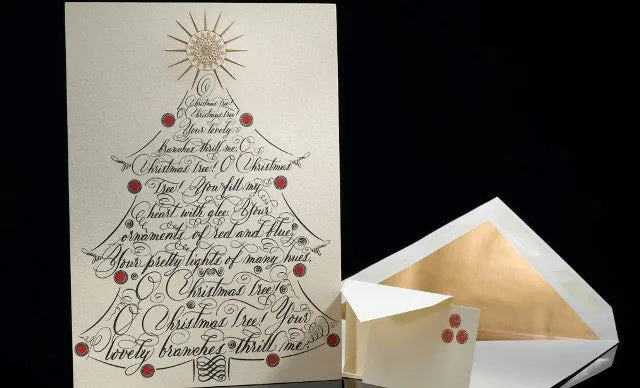 O
Christmas Tree!
O Christmas Tree!
Your lovely
branches thrill me. O
Christmas Tree! O Christmas
Tree! You fill my
heart with glee. Your
ornaments of red and blue,
Your pretty lights of many hues,
O Christmas Tree!
O Christmas Tree! Your
lovely branches thrill me.